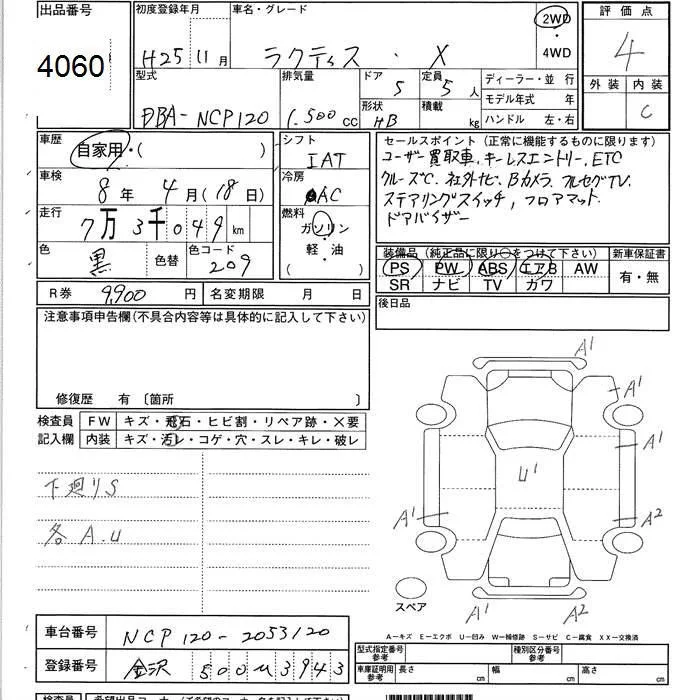 出品番号
4060
初度登録年月
H25 11月
車名・グレード
ラクティス ・ X
2WD
・
4WD
評価点
4
外装 内装
C
型式
DBA-NCP120
排気量
1.500cc
ドア
5
定員
5人
形状
HB
積載
kg
ディーラー・並行
モデル年式 年
ハンドル 左・右
車歴
自家用・( )
車検
8年 4月(18日)
走行
7万3千049km
色
黒
色替
色コード
209
シフト
IAT
冷房
AC
燃料
ガソリン
軽・油
( )
セールスポイント(正常に機能するものに限ります)
ユーザー買取車、キーレスエントリー、ETC
クルーズC、社外ナビ、Bカメラ、フルセグTV、
ステアリングスイッチ、フロアマット、
ドアバイザー
装備品(純正品に限り○をつけて下さい)
PS PW ABS エアB AW
SR ナビ TV カワ
新車保証書
有・無
R券 9,900円
名変期限 月 日
後日品
注意事項申告欄(不具合内容等は具体的に記入して下さい)
修復歴 有〔箇所 〕
検査員
記入欄
FW キズ・飛石・ヒビ割・リペア跡・×要
内装 キズ・汚レ・コゲ・穴・スレ・キレ・破レ
下廻りS
各A.U
A1
A1
A1
U1
A1
A2
A1
A2
スペア
A-キズ E-エクボ U-凹み W-補修跡 S-サビ C-腐食 XX-交換済
車台番号
NCP120-2053120
登録番号
金沢 500 3943
型式指定番号
参考
種別区分番号
参考
車庫証明用
参考
長さ cm
幅 cm
高さ cm
検査員